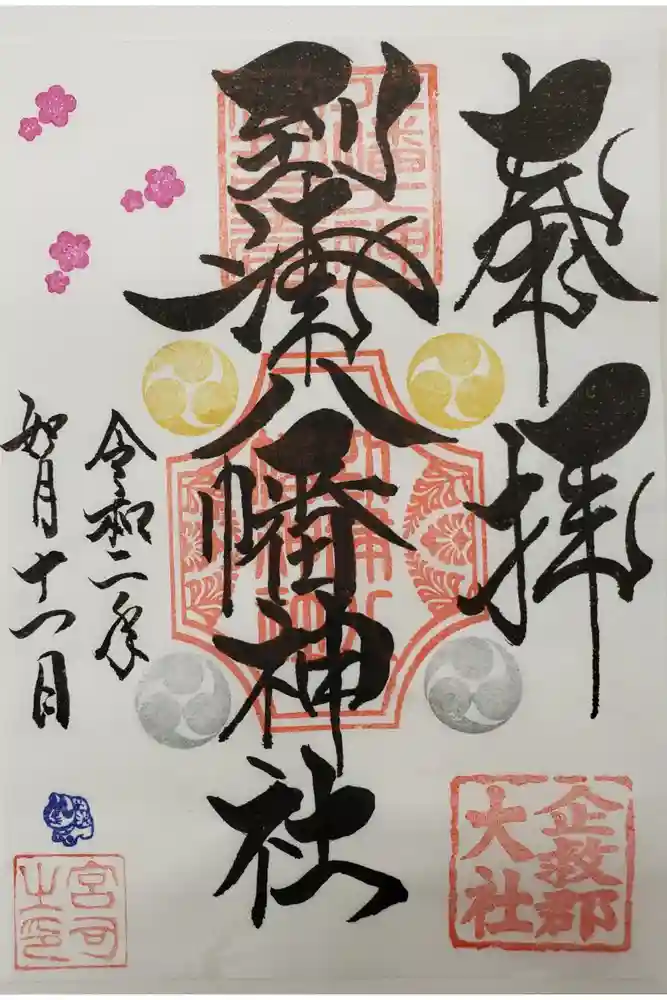 奉拝
到津八幡神社
令和二年
如月十一日
企救郡
大社
宮司
之印